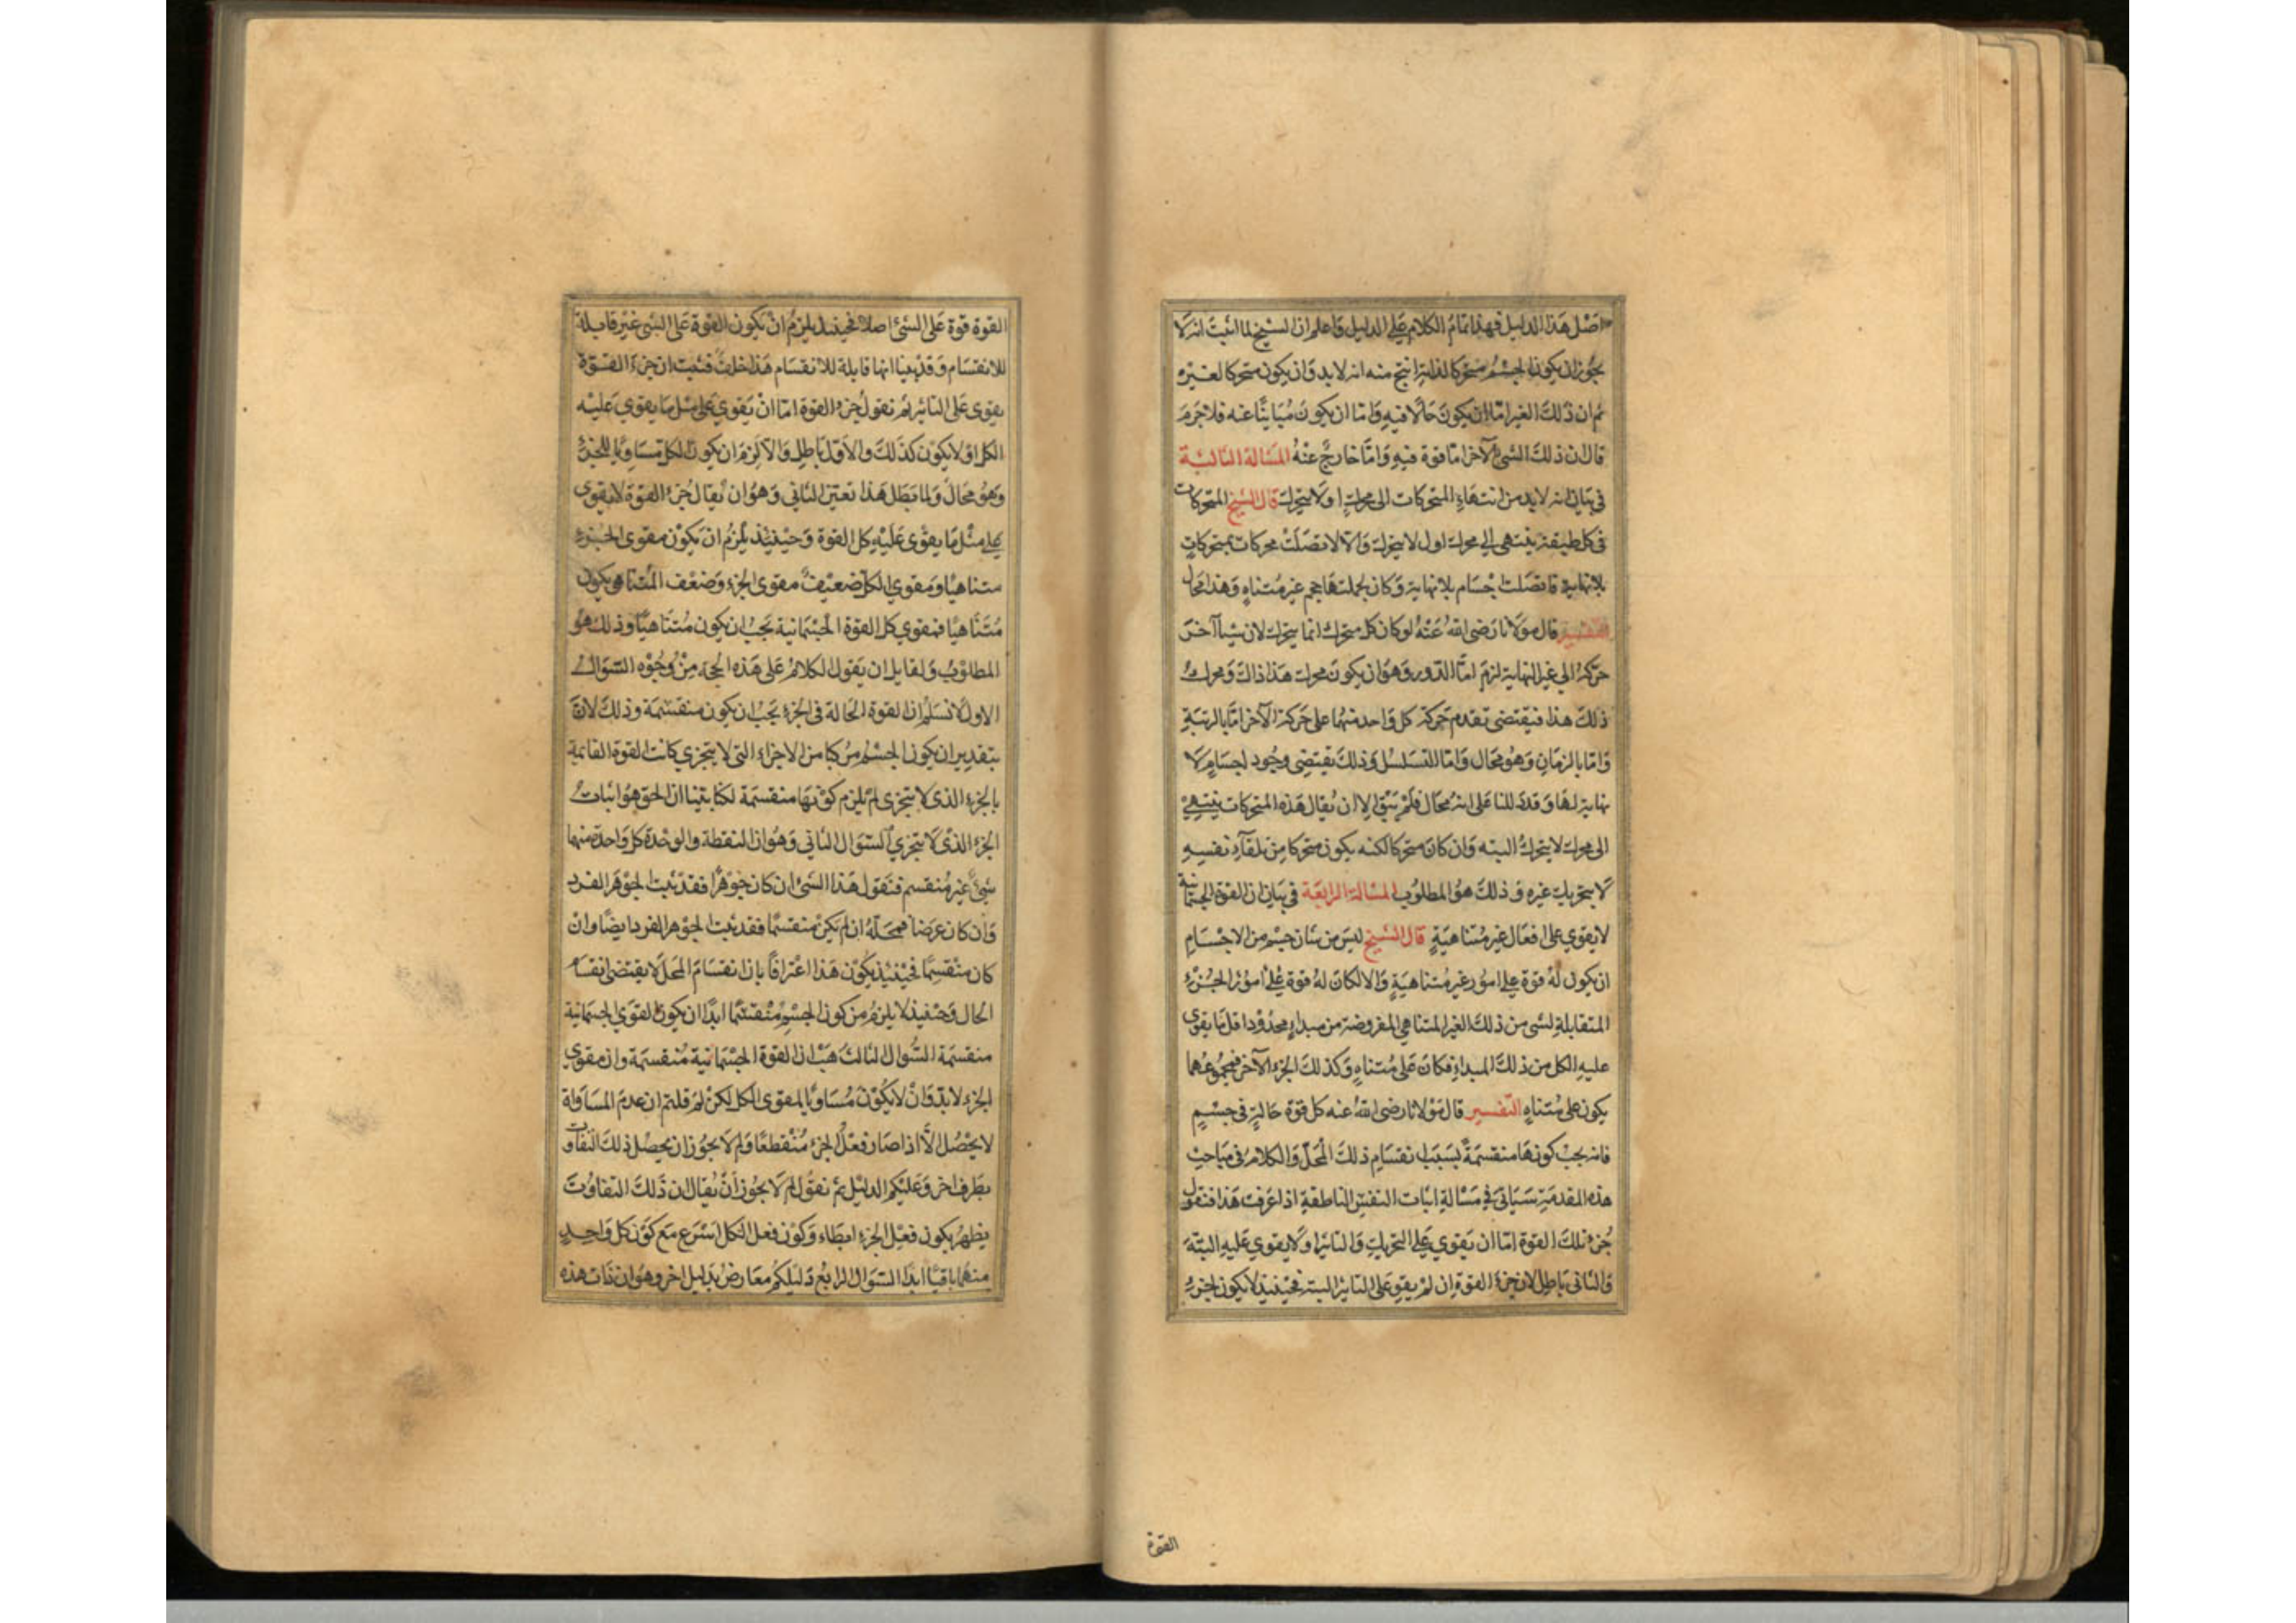 اصل هذا الدليل فهذا تمام الكلام على الدليل واعلم ان الشيخ لما اثبت انه لا
يجوز ان يكون الجسم متحركا لذاته انتج منه انه لا بد وان يكون متحركا لغيره
ثم ان ذلك الغير اما ان يكون حالا فيه واما ان يكون مباينا عنه فلا جرم
قال ان ذلك الشئ الآخر اما قوة فيه واما خارج عنه المسالة الثالثة
في بيان انه لا بد من انتهاء المتحركات الى محرك اول لا يتحرك قال الشيخ المتحركات
في كل طبقة ينتهى الى محرك اول لا يتحرك والا لاتصلت محركات بمتحركات
بلا نهاية فاتصلت اجسام بلا نهاية وكان لجملتها حجم غير متناه وهذا محال
التفسير قال مولانا رضى الله عنه لو كان كل متحرك انما يتحرك لان شيا آخر
حركه الى غير النهاية لزم اما الدور وهو ان يكون محرك هذا ذاك ومحرك
ذلك هذا فيقتضى تقدم حركة كل واحد منهما على حركة الآخر اما بالرتبة
واما بالزمان وهو محال واما التسلسل وذلك يقتضى وجود اجسام لا
نهاية لها وقد دللنا على انه محال فلم يبق الا ان يقال هذه المتحركات ينتهى
الى محرك لا يتحرك البته وان كان متحركا لكنه يكون متحركا من تلقاء نفسه
لا بتحريك غيره وذلك هو المطلوب المسالة الرابعة في بيان ان القوة الجسمانية
لا يقوي على افعال غير متناهية قال الشيخ ليس من شان جسم من الاجسام
ان يكون له قوة على امور غير متناهية والا لكان له قوة على امور الجزء
المتقابلة لشى من ذلك الغير المتناهى المفروضة من مبداء محدود اقل ما يقوى
عليه الكل من ذلك المبداء فكان على متناه وكذلك الجزء الآخر فمجموعهما
يكون على متناه التفسير قال مولانا رضى الله عنه كل قوة حالة في جسم
فانه يجب كونها منقسمة بسبب انقسام ذلك المحل والكلام في مباحث
هذه المقدمة سياتى في مسالة اثبات النفس الناطقة اذا عرفت هذا فنقول
جزء تلك القوة اما ان يقوي على التحريك والتاثير او لا يقوي عليه البتة
والثانى باطل لان جزء القوة ان لم يقو على التاثير البتة فحينئذ لا يكون لجزء
القوة
القوة قوة على الشئ اصلا فحينئذ يلزم ان يكون القوة على الشى غير قابلة
للانقسام وقد بينا انها قابلة للانقسام هذا خلف فثبت ان جزء القوة
يقوى على التاثير ثم نقول جزء القوة اما ان يقوي على مثل ما يقوي عليه
الكل او لا يكون كذلك والاول باطل والا لزم ان يكون الكل مساويا للجزء
وهو محال ولما بطل هذا تعين الثاني وهو ان يقال جزء القوة لا يقوى
على مثل ما يقوى عليه كل القوة وحينئذ يلزم ان يكون مقوى الجزء
متناهيا ومقوي الكل ضعيف مقوى الجزء وضعف المتناهي يكون
متناهيا فمقوي كل القوة الجسمانية يجب ان يكون متناهيا وذلك هو
المطلوب ولقايل ان يقول الكلام على هذه الحجة من وجوه السوال
الاول لا نسلم ان القوة الحالة في الجزء يجب ان يكون منقسمة وذلك لان
بتقدير ان يكون الجسم مركبا من الاجزاء التى لا يتجزي كانت القوة القائمة
بالجزء الذى لا يتجزى لم يلزم كونها منقسمة لكنا بينا ان الحق هو اثبات
الجزء الذى لا يتجزي السوال الثاني وهو ان النقطة والوحدة كل واحدة منهما
شئ غير منقسم فنقول هذا الشئ ان كان جوهرا فقد ثبت الجوهر الفرد
وان كان عرضا فمحله ان لم يكن منقسما فقد ثبت الجوهر الفرد ايضا وان
كان منقسما فحينئذ يكون هذا اعترافا بان انقسام المحل لا يقتضى انقسام
الحال وحينئذ لا يلزم من كون الجسم منقسما ابدا ان يكون القوي الجسمانية
منقسمة السوال الثالث هب ان القوة الجسمانية منقسمة وان مقوي
الجزء لا بد وان لا يكون مساويا لمقوى الكل لكن لم قلتم ان عدم المساواة
لا يحصل الا اذا صار فعل الجزء منقطعا ولم لا يجوز ان يحصل ذلك التفاوت
بطرف اخر وعليكم الدليل ثم نقول لم لا يجوز ان يقال ان ذلك التفاوت
يظهر بكون فعل الجزء ابطاء وكون فعل الكل اسرع مع كون كل واحد
منهما باقيا ابدا السوال الرابع دليلكم معارض بدليل اخر وهو ان ذات هذه